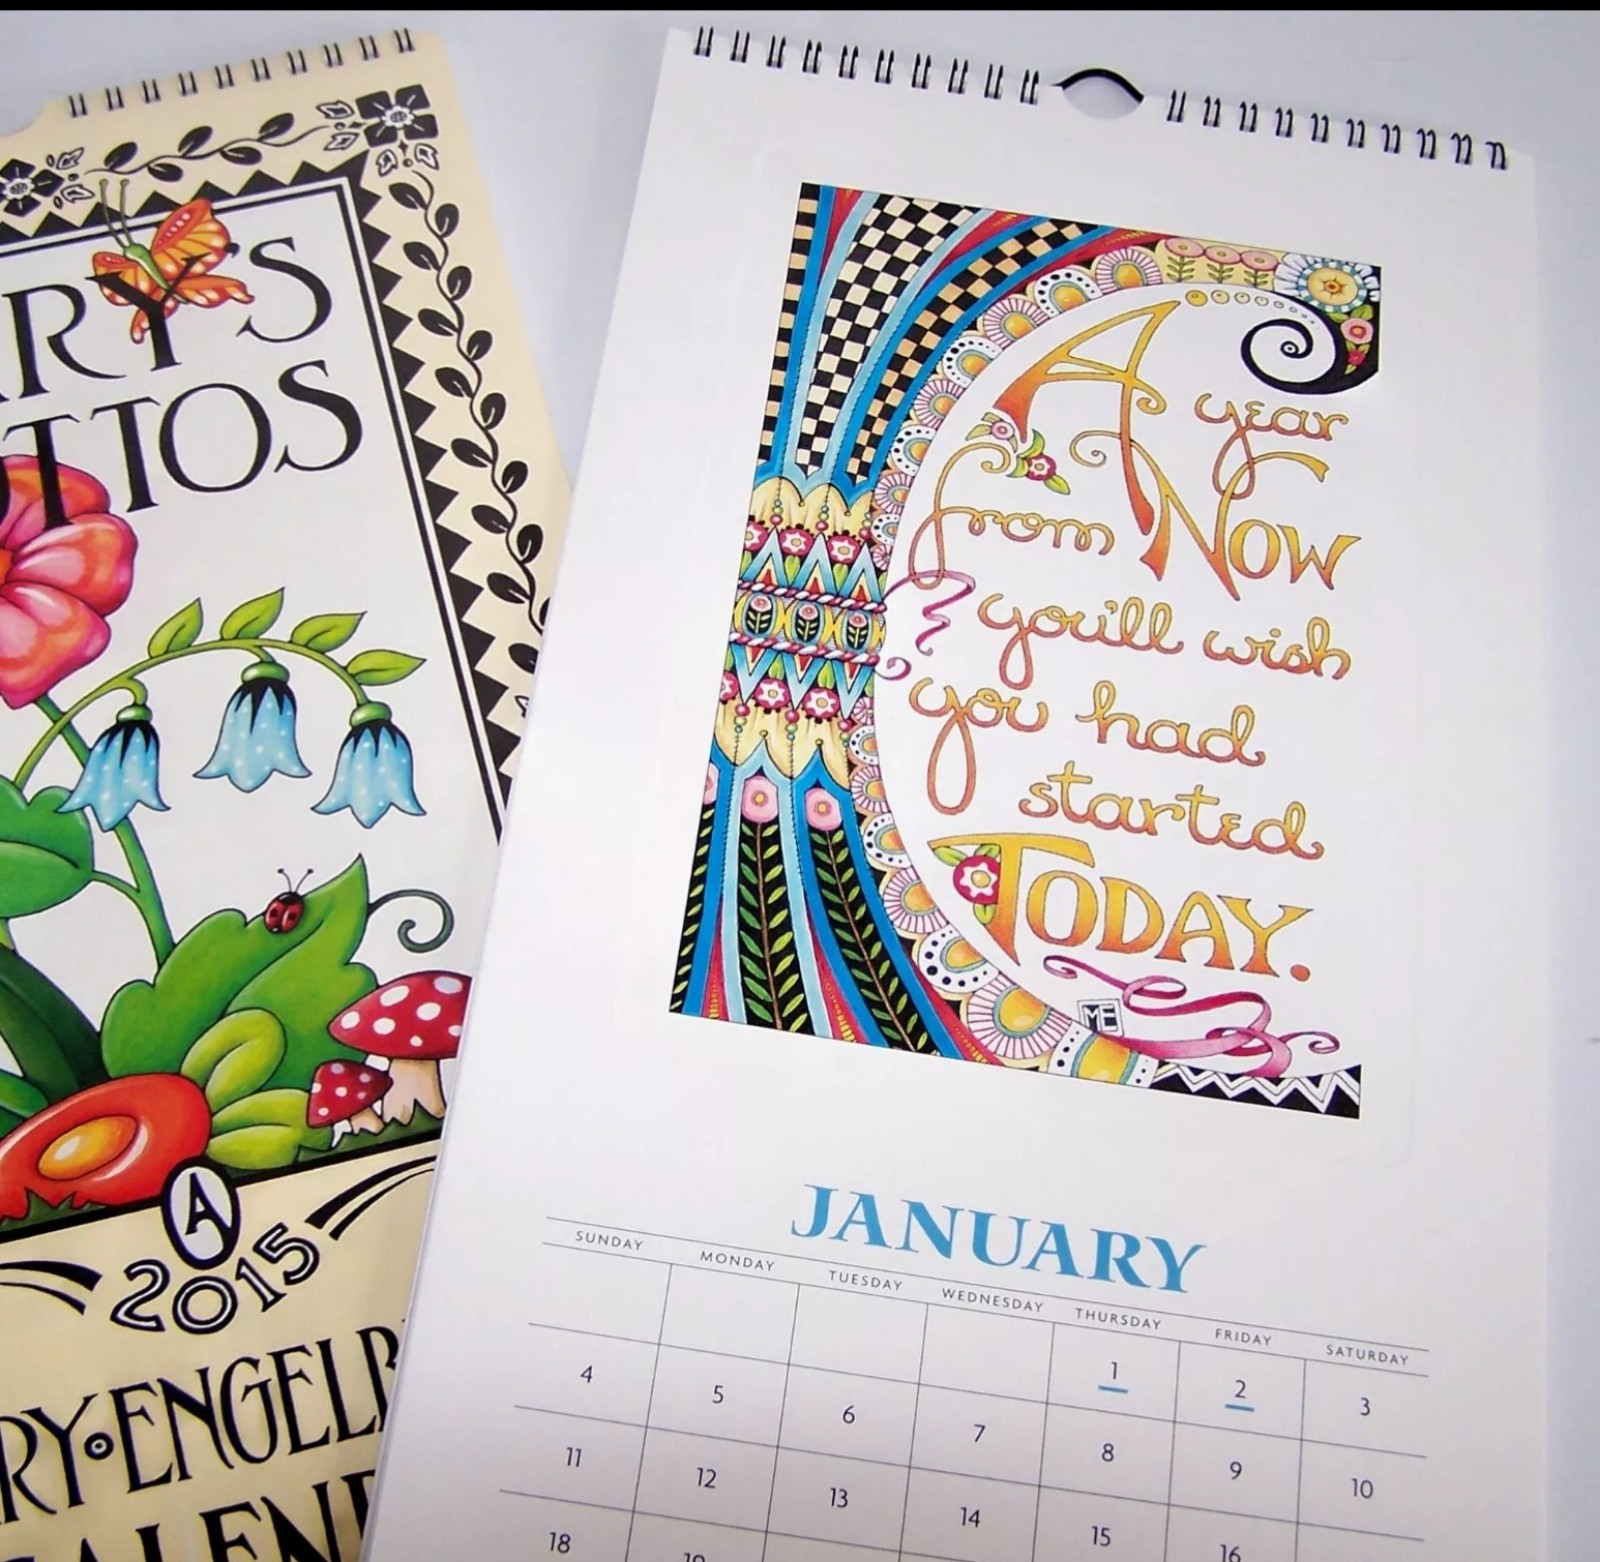 ARY'S
OTTOS
A
2015
RY•ENGELB
ALEND
A year
from Now
you'll wish
you had
started
TODAY.
ME
JANUARY
SUNDAY MONDAY TUESDAY WEDNESDAY THURSDAY FRIDAY SATURDAY
1 2 3
4 5 6 7 8 9 10
11 12 13 14 15 16
18 19